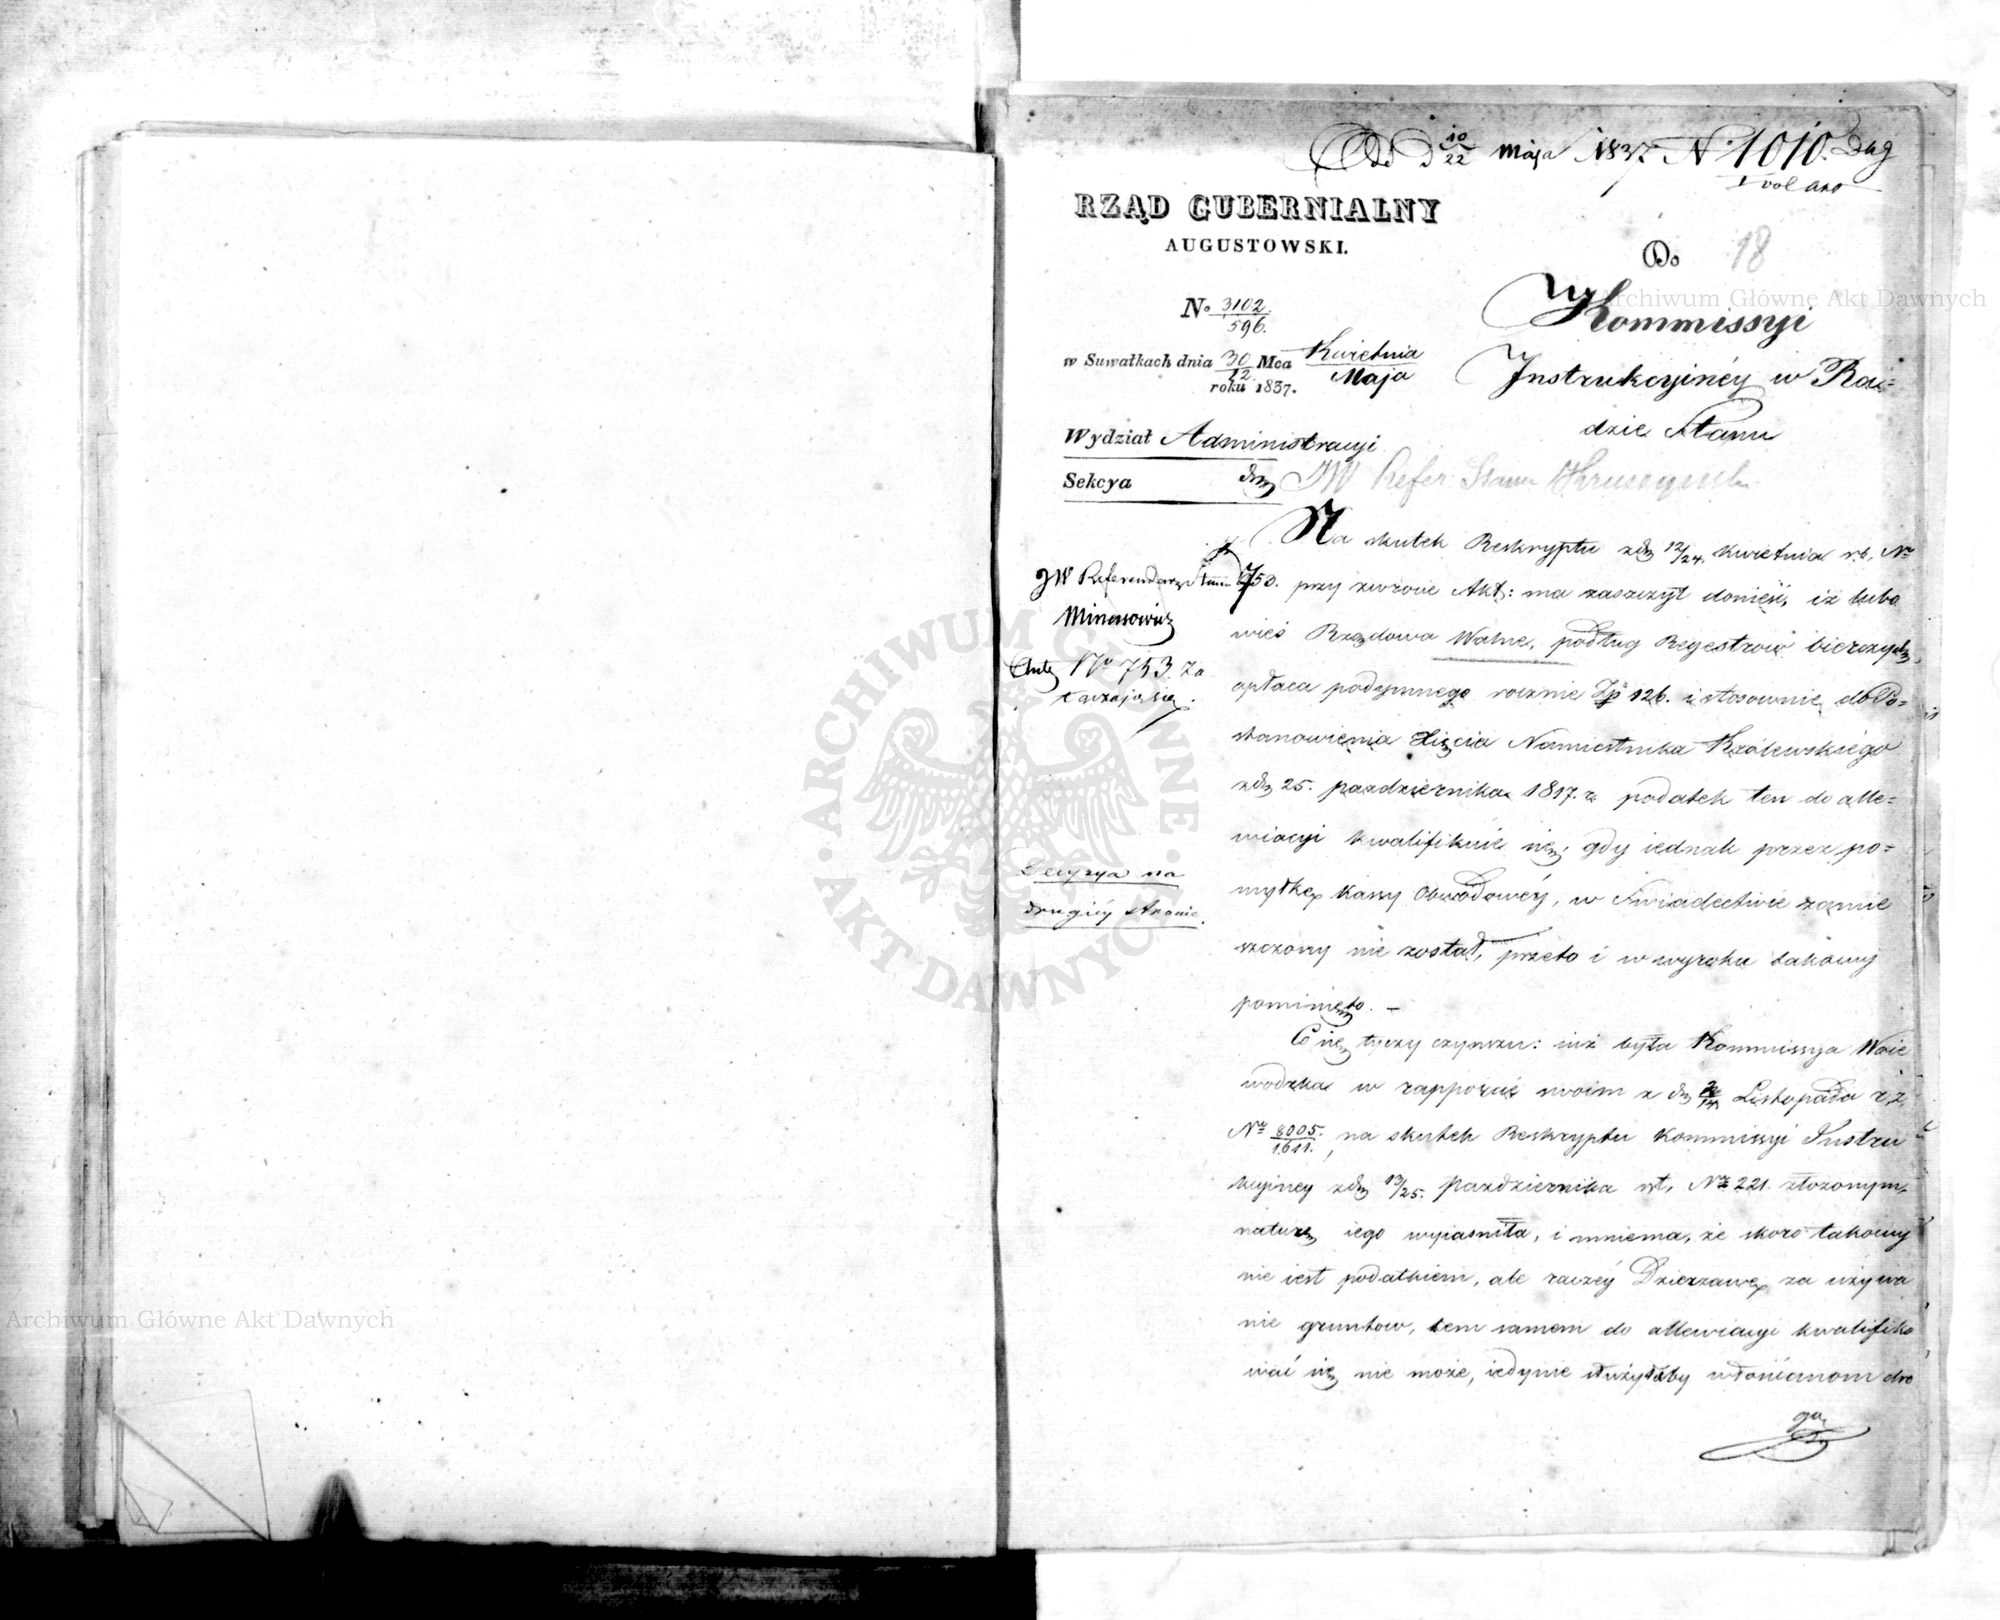 Od D 10/22 Maja 1837 N. 1010. Dug
1 vol akt
RZĄD GUBERNIALNY
AUGUSTOWSKI.
Do 18
Kommissyi
Instrukcyinéy w Ra-
dzie Stanu
No 3102/596.
w Suwałkach dnia 30/12 Mca Kwietnia/Maja
roku 1837.
Wydział Administracyi
Sekcya
JW Refer Stanu
JW Referendarz Stanu
Minasowicz
N° 753. za
łączają się.
Decyzya na
drugiéy stronie.
Na skutek Reskryptu z d. 12/24. Kwietnia r.b. Nr
750. przy zwrocie Akt: ma zaszczyt donieść, iż lubo
wieś Rządowa Walne, podług Regestrów bierczych,
opłaca podymnego rocznie Zp 126. i stosownie do Po-
stanowienia Xięcia Namiestnika Królewskiego
z d. 25. pazdziernika 1817. r. podatek ten do alle-
wiacyi kwalifikuie się, gdy iednak przez po-
myłkę Kassy Obwodowéy, w Swiadectwie zamie
szczony nie został, przeto i w wyroku takowy
pominięto. —
Co się tyczy czynszu: iuż była Kommissya Woie
wodzka w rapporcie swoim z d. Listopada r.z.
Nr 8005./1611., na skutek Reskryptu Kommissyi Instru
kcyiney z d. 13/25. Pazdziernika r.t. Nr 221. złożonym,
naturę iego wyiasniła, i mniema, że skoro takowy
nie iest podatkiem, ale raczéy Dzierzawę za używa
nie gruntow, tem samem do allewiacyi kwalifiko
wać się nie może, iedynie służyłaby włościanom dro
ga
Archiwum Główne Akt Dawnych
Archiwum Główne Akt Dawnych
ARCHIWUM GŁÓWNE AKT DAWNYCH